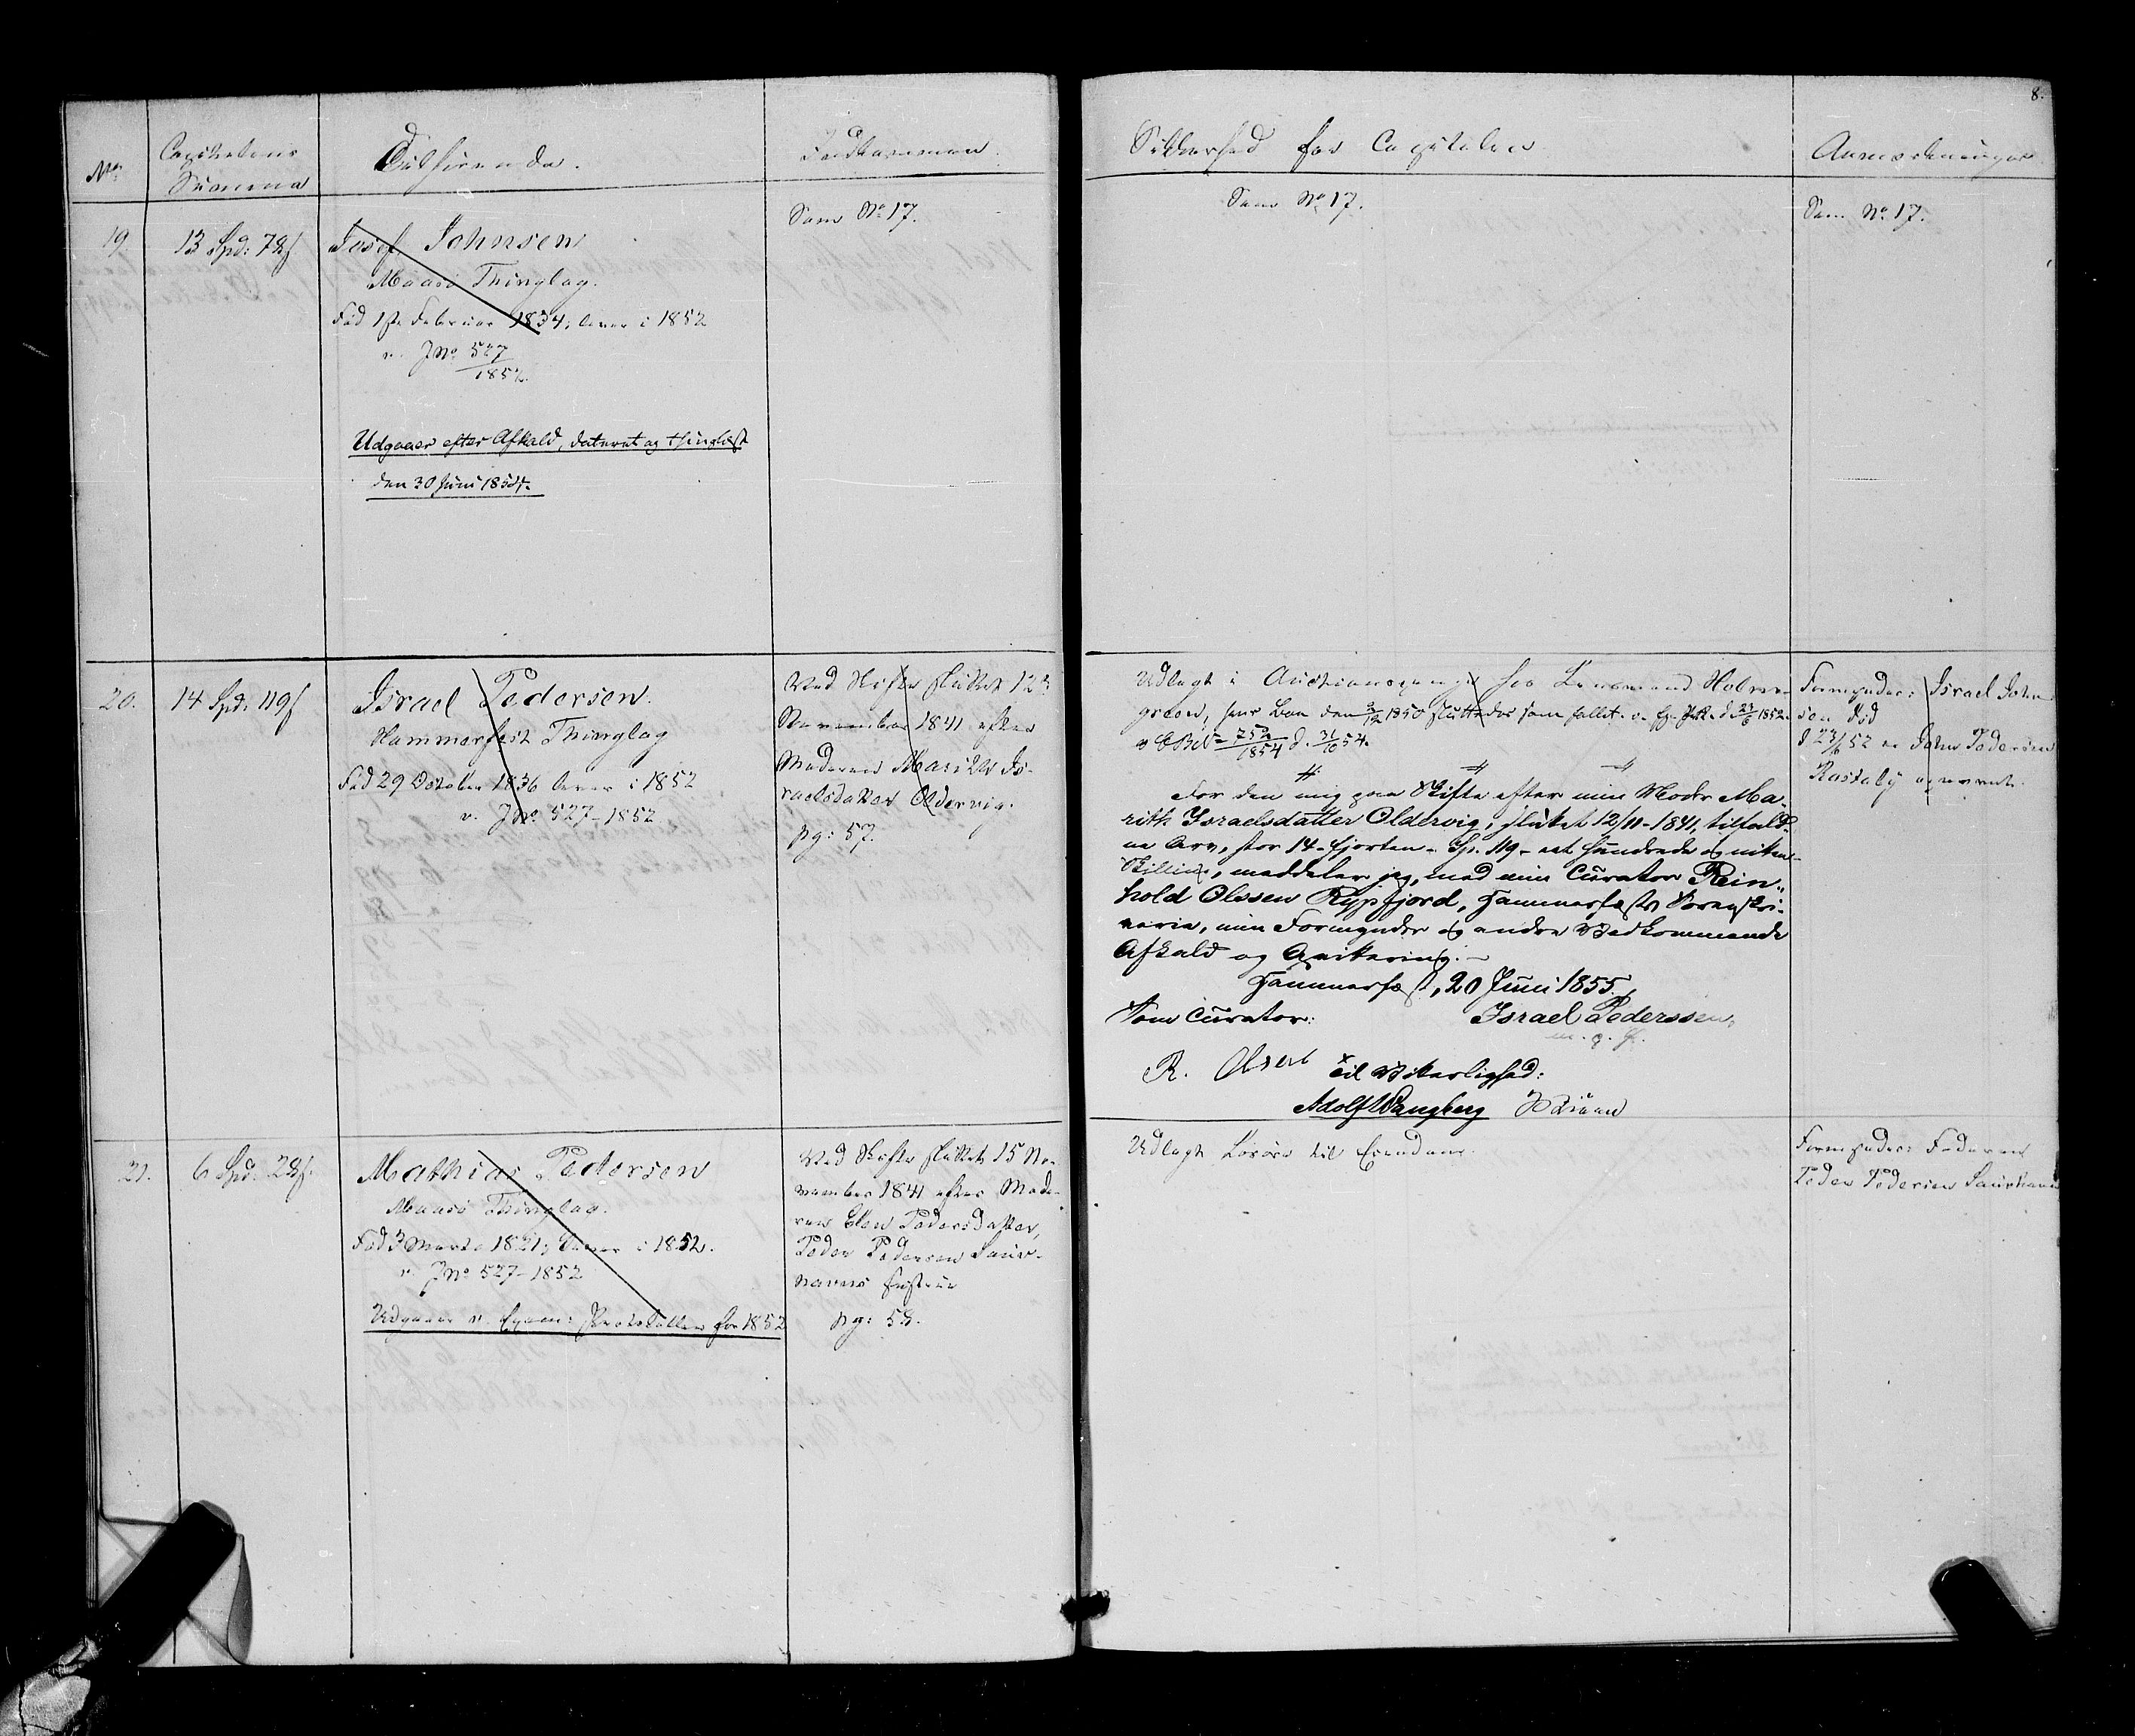 8.
No.
Capitalens
Summa
Eierinde.
Indkommen.
Sikkerhed for Capitalen
Anmærkninger
19.
13 Spd: 78 s
Josef Johnsen
Maasø Thinglag.
Fød 1ste Februar 1834; lever i 1852
v. J No. 527
1852.
Udgaaer efter Afkald, dateret og thinglæst
den 30 Juni 1854.
Som No. 17.
Som No. 17.
Som No. 17.
20.
14 Spd: 119 s
Israel Pedersen.
Hammerfest Thinglag
Fød 29 October 1836 lever i 1852
v. J No. 527-1852
Ved Skifte sluttet 12te
November 1841 efter
Moderen Marith Is-
raelsdatter Oldervig.
pg: 57.
Udlagt i Auctionspenge hos Lensmand Holm-
green, hvis Boe den 3/12 1850 sluttedes som fallit. v. d. 23/6 1852.
752/1854 d. 31/10 54.
For den mig paa Skifte efter min Moder Ma-
rith Israelsdatter Oldervig, sluttet 12/11-1841, tilfald-
ne Arv, stor 14- fjorten - Sp. 119- et hundrede og nitten-
Skilling, meddeler jeg, med min Curator Rein-
hold Olssen Rypfjord, Hammerfests Sorenskri-
verie, min Formynder og andre Vedkommende
Afkald og Qvittering. -
Hammerfest, 20 Juni 1855.
Som Curator:
Israel Pederssen.
m. p. P.
R. Olsen
Til Vitterlighed:
Adolf Wangberg
Formynder: Israel John-
sen død
d 23/6 52 er John Pedersen
Rastaby opnævnt.
21.
6 Spd: 28 s.
Mathias Pedersen
Maasø Thinglag.
Fød 3 Marts 1821; lever i 1852.
v. J No. 527-1852
Udgaaer v. Exam: Protocollen for 1852
Ved Skifte sluttet 15 No-
vember 1841 efter Mode-
ren Ellen Pedersdatter,
Peder Pedersen Saur-
havns Hustrue
pg: 58.
Udlagt Løsøre til Eiendom.
Formynder: Faderen
Peder Pedersen Saurhavn